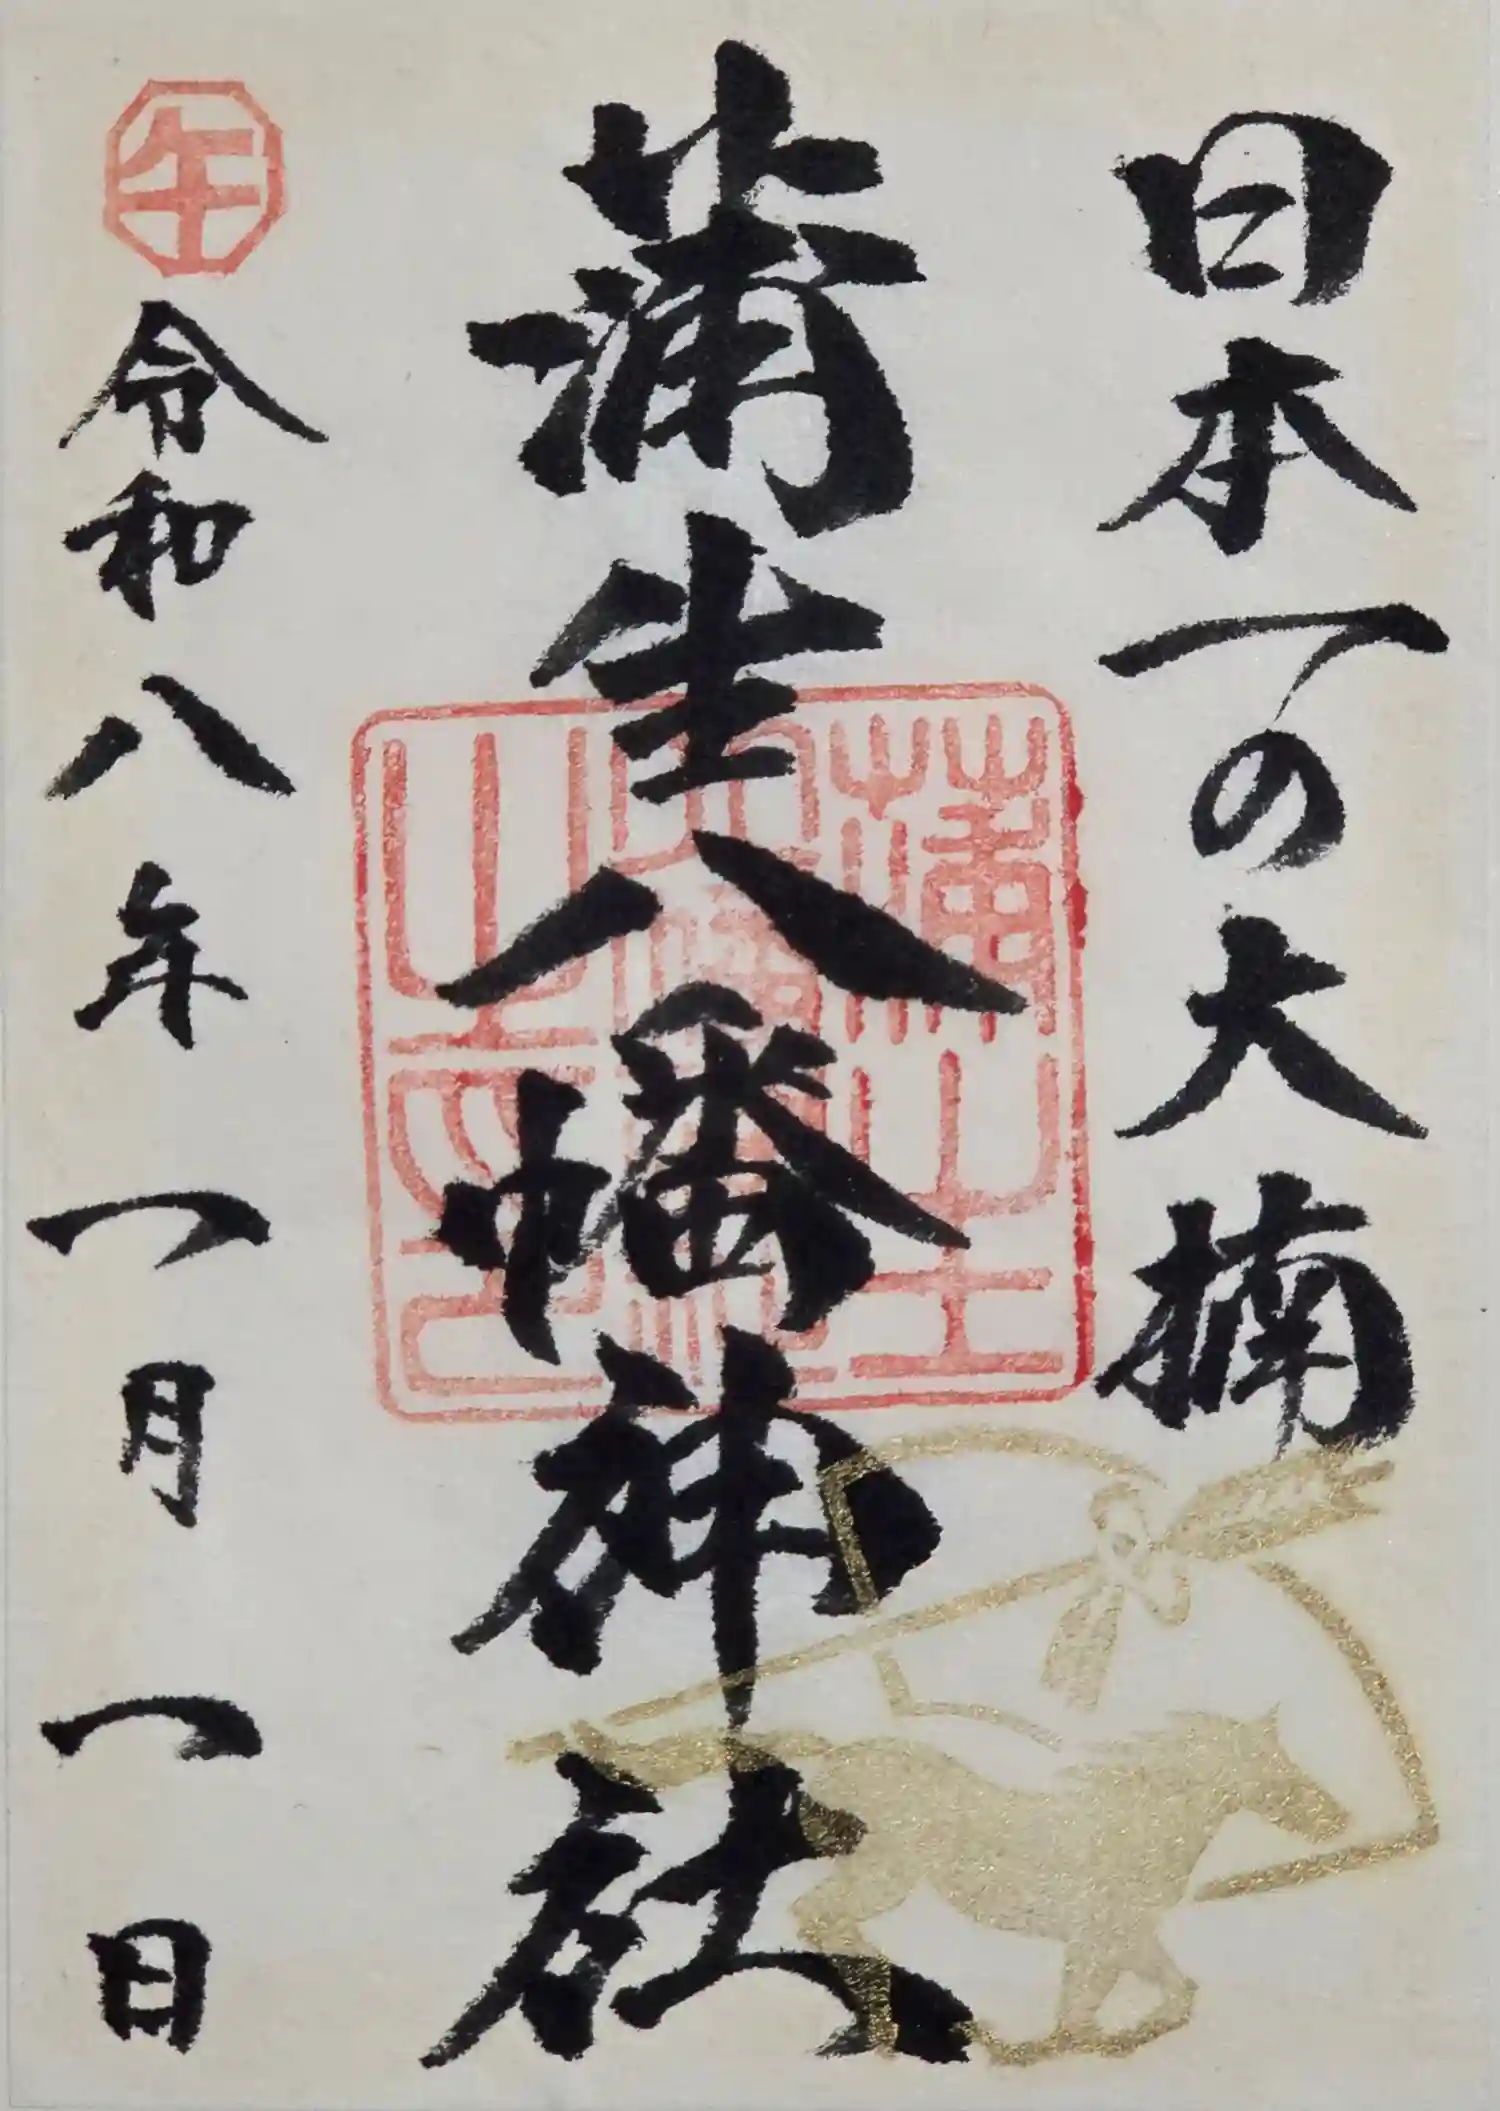 日本一の大楠
蒲生八幡神社
蒲生八幡神社之印
午
令和八年一月一日